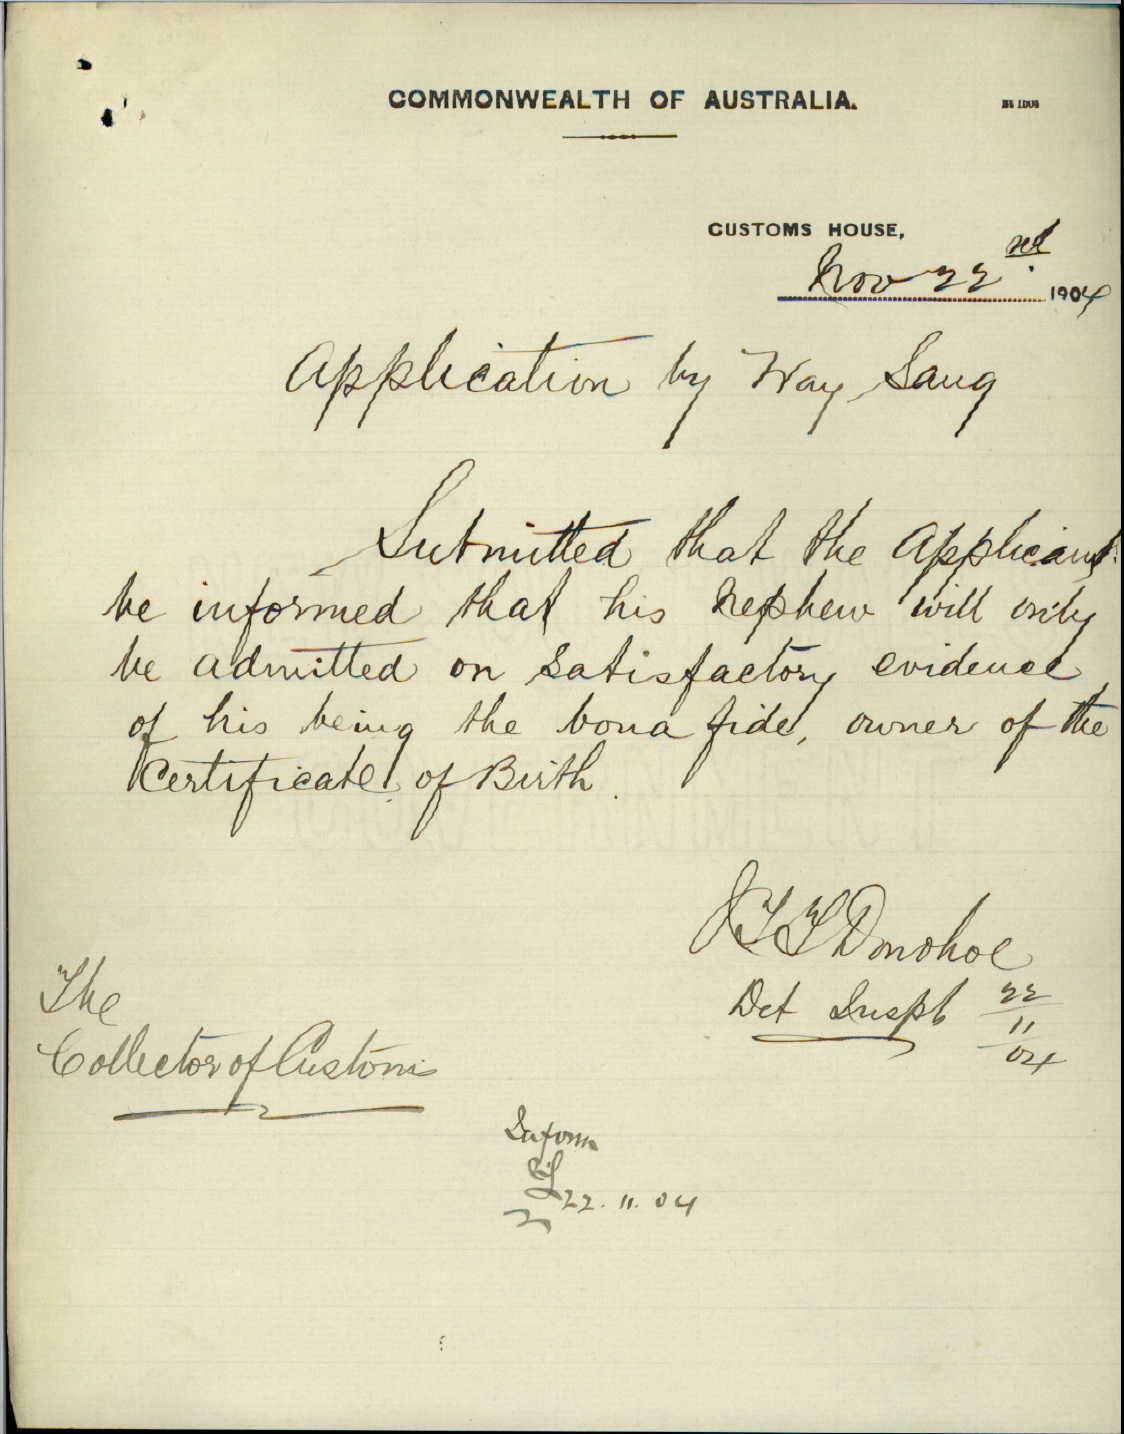 COMMONWEALTH OF AUSTRALIA.
CUSTOMS HOUSE,
Nov 22nd 1904
Application by Way Sang
Submitted that the Applicant
be informed that his Nephew will only
be admitted on satisfactory evidence
of his being the bona fide, owner of the
Certificate of Birth.
Donohoe
Det Inspt 22/11/04
The
Collector of Customs
Inform
22.11.04